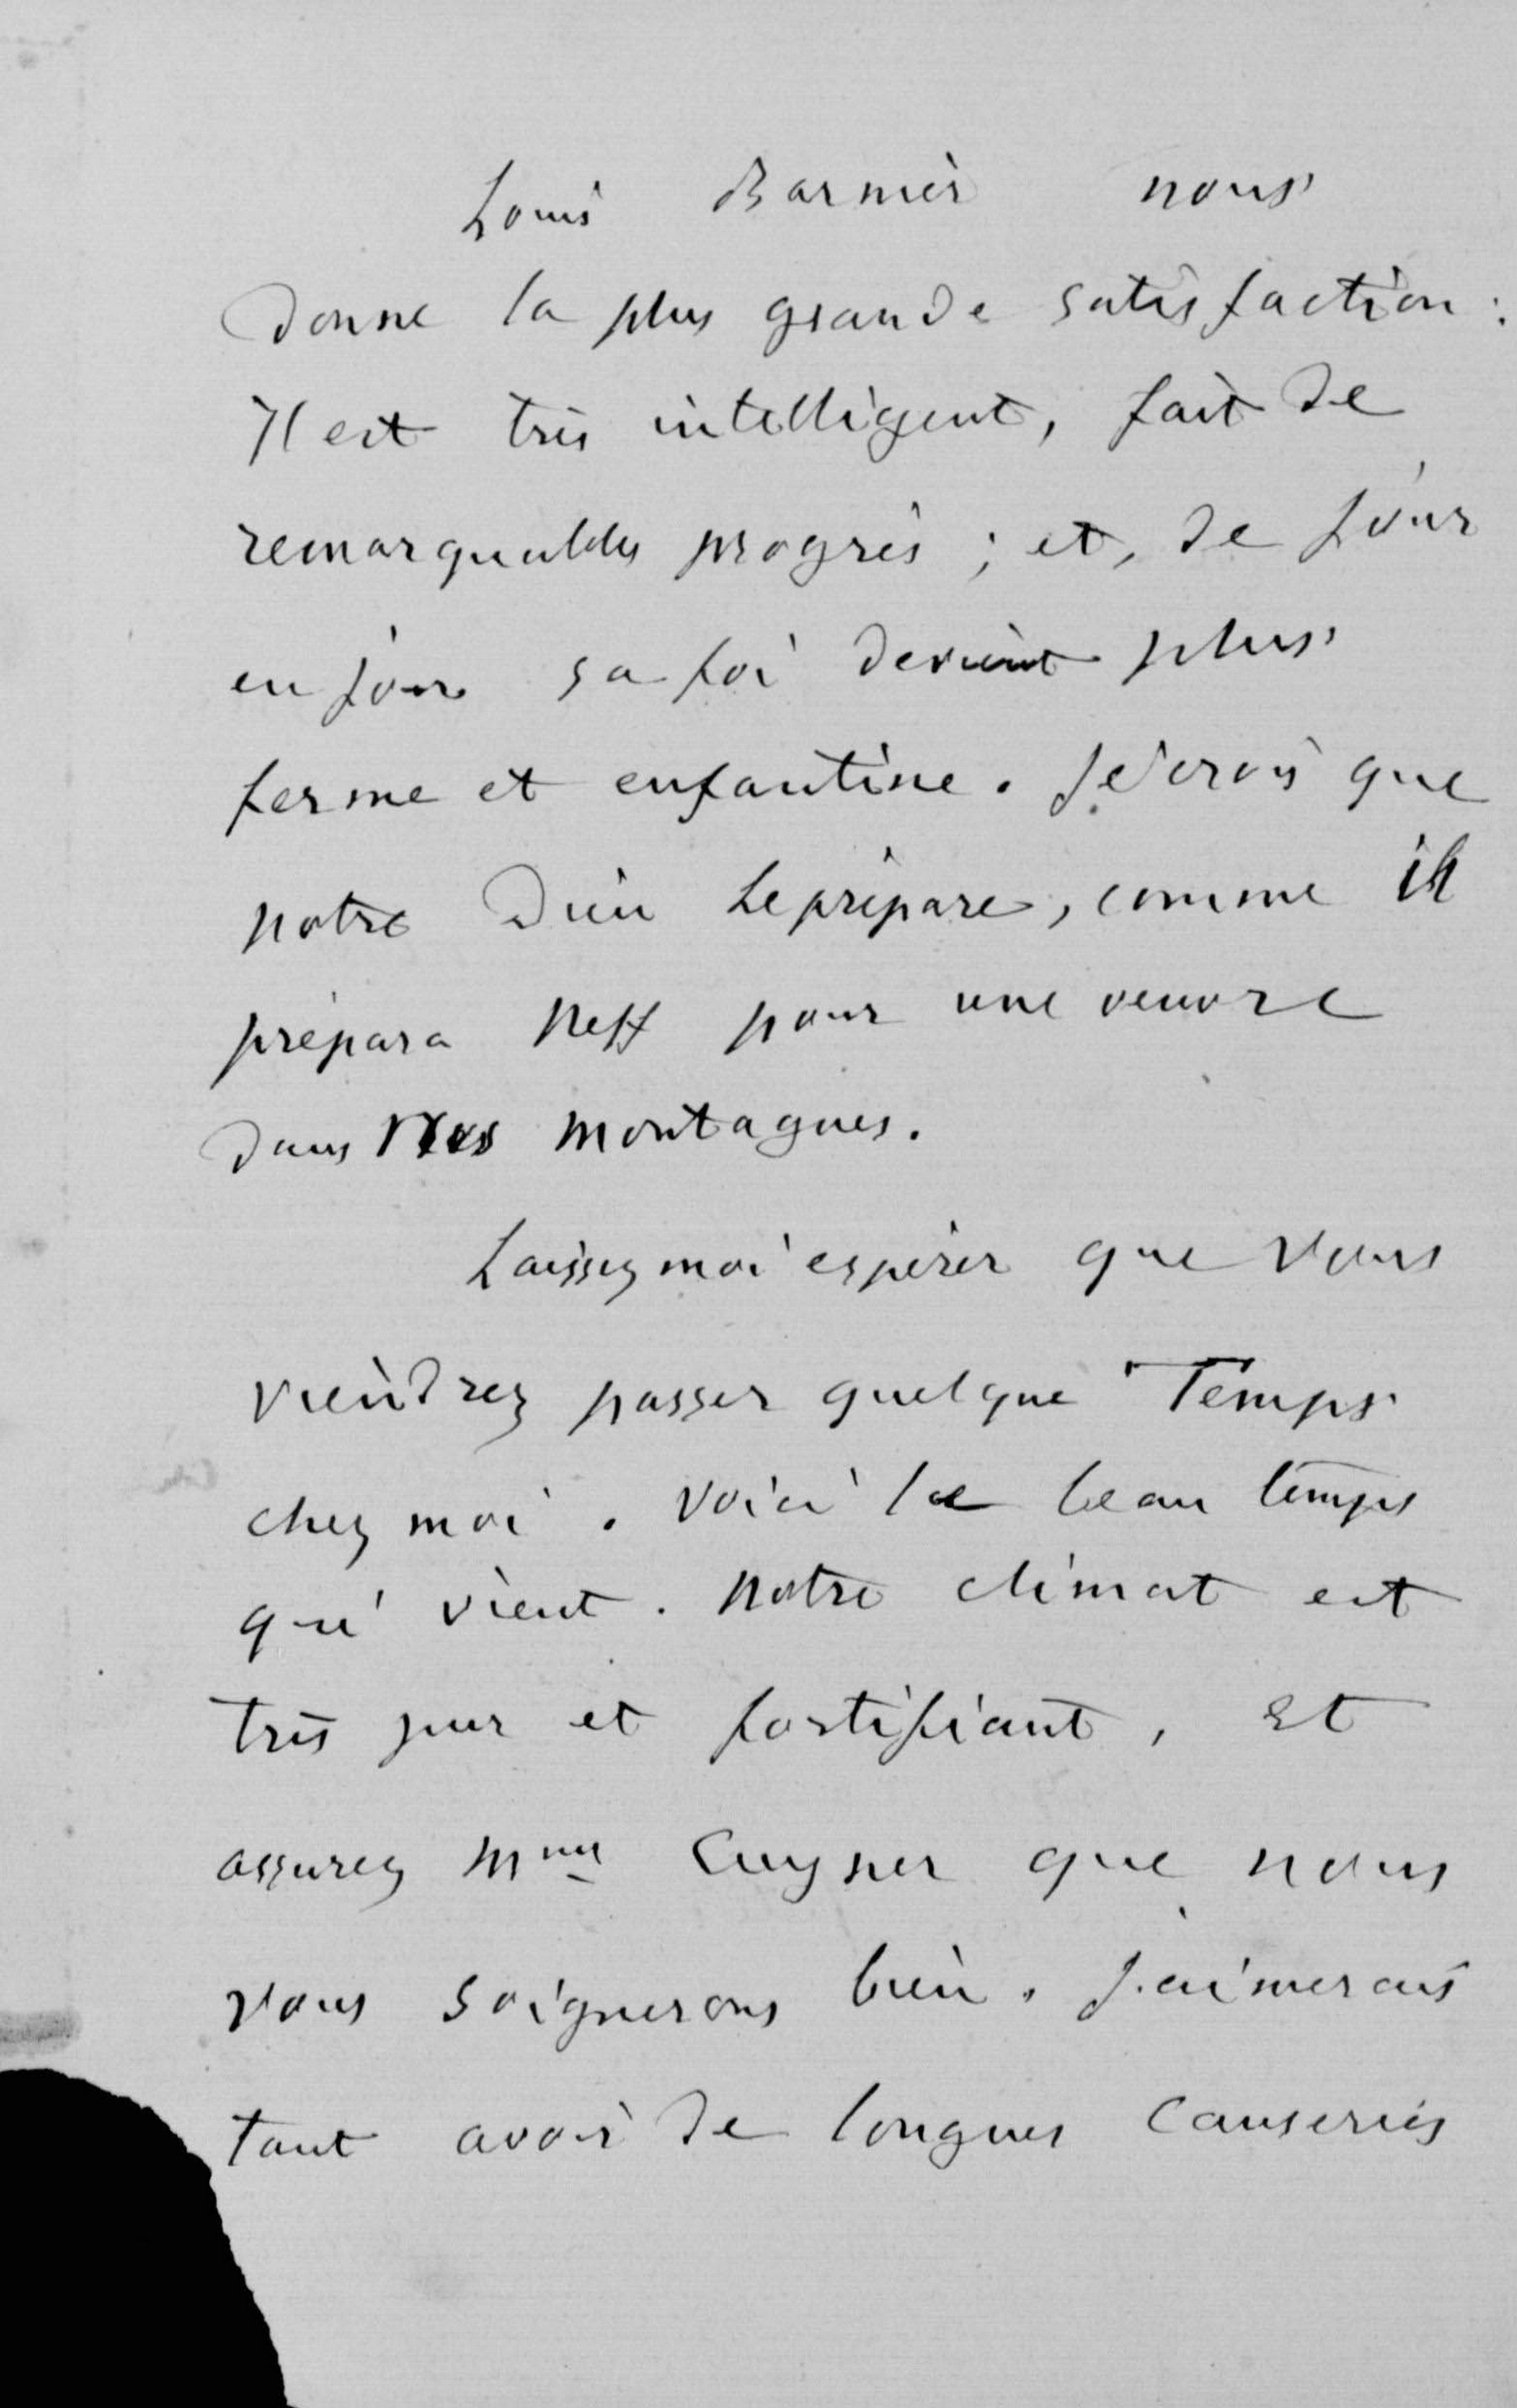 Louis Barnier nous
donne la plus grande satisfaction :
Il est très intelligent, fait de
remarquables progrès ; et, de jour
en jour sa foi devient plus
ferme et enfantine. Je crois que
notre Dieu le prépare, comme il
prépara Neff pour une oeuvre
dans nos montagnes.
Laissez moi espérer que vous
viendrez passer quelque temps
chez moi. Voici le beau temps
qui vient. Notre climat est
très pur et fortifiant, et
assurez Mme que nous
vous soignerons bien. J'aimerais
tant avoir de longues causeries